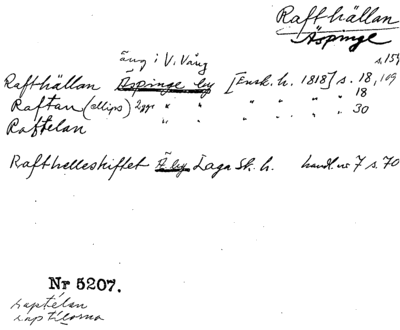 Rafthällan
Äspinge
s. 159
äng i V. Vång
Rafthällan Äspinge by [Ensk. h. 1818] s. 18, 109
Raftan (ellips) 2ggr " " " " " " 18
Raftelan " " " " " 30
Rafthelleskiftet Ä by Laga Sk. h. handl. nr 7 s. 70
Nr 5207.
raptélan